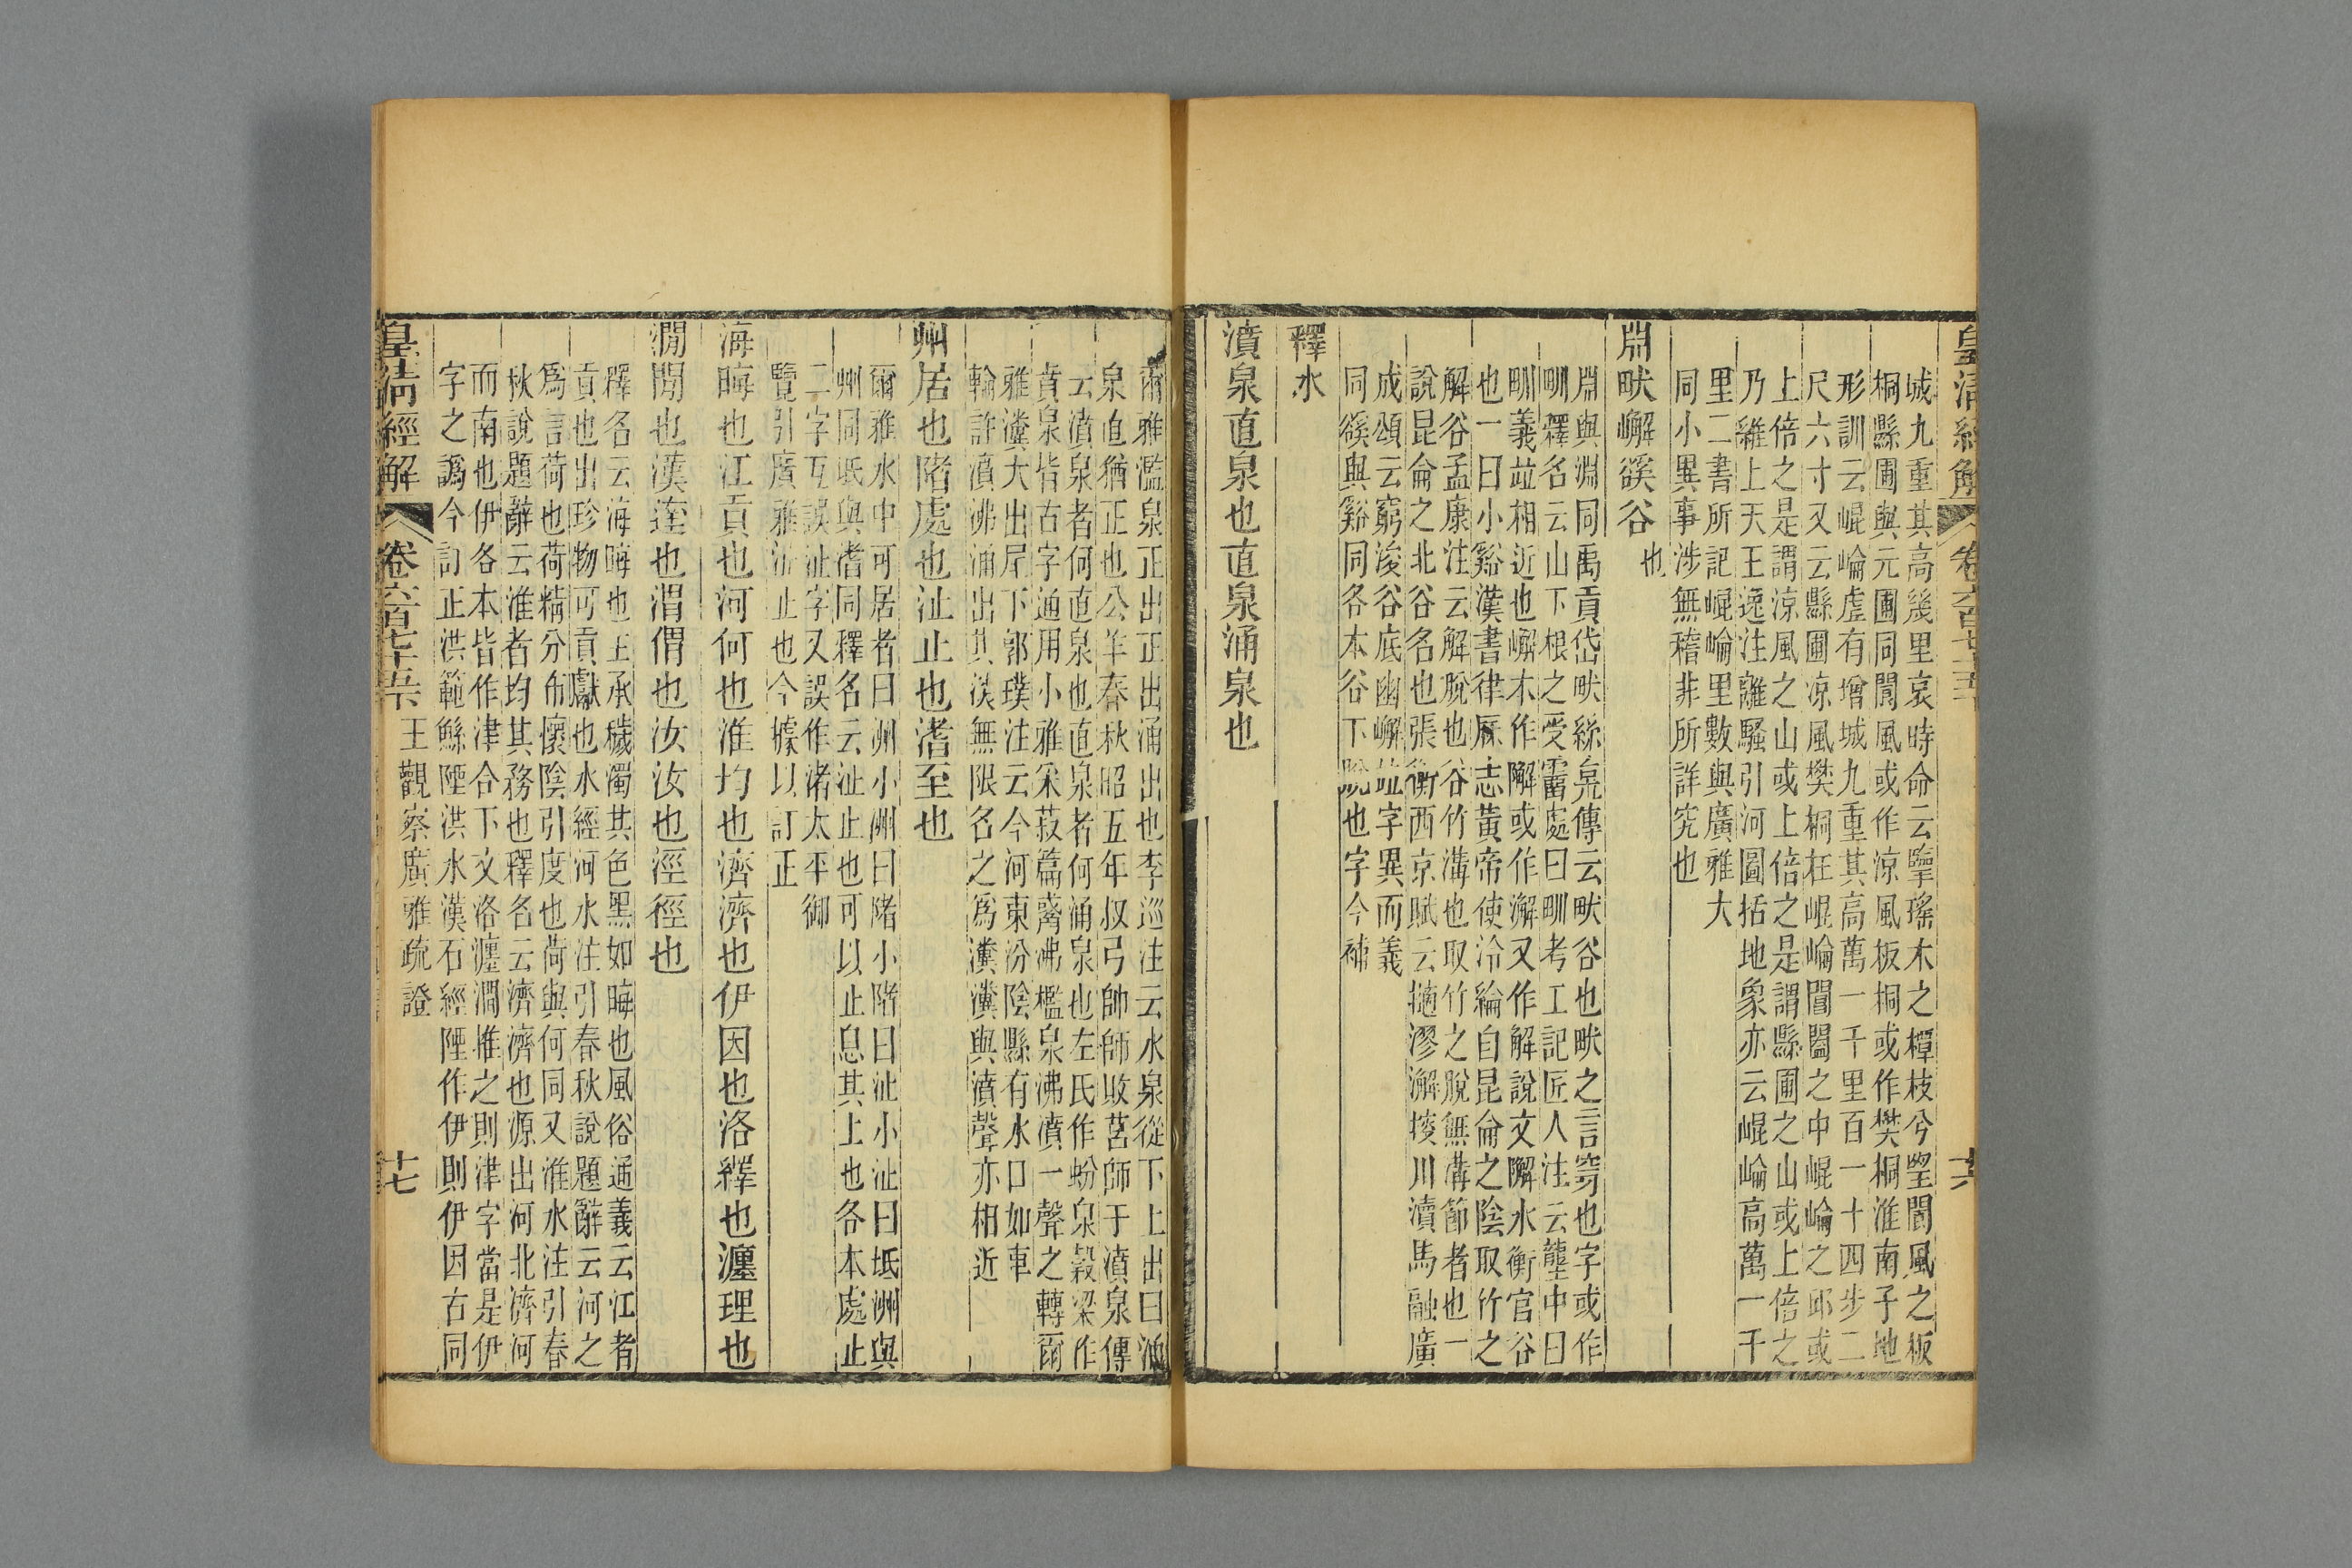 皇清經解 卷六百七十五 十六
城九重其高幾里哀時命云擥瑤木之橝枝兮望閬風之板
桐縣圃與元圃同閬風或作涼風板桐或作樊桐淮南子地
形訓云崐崘虛有增城九重其高萬一千里百一十四步二
尺六寸又云縣圃涼風樊桐在崐崘閶闔之中崐崘之邱或
上倍之是謂涼風之山或上倍之是謂縣圃之山或上倍之
乃維上天王逸注離騷引河圖括地象亦云崐崘高萬一千
里二書所記崐崘里數與廣雅大
同小異事涉無稽非所詳究也
㶜畎嶰谿谷也
㶜與淵同禹貢岱畎絲枲傳云畎谷也畎之言穿也字或作
甽釋名云山下根之受霤處曰甽考工記匠人注云壟中曰
甽義竝相近也嶰木作隬或作澥又作解說文隬水衡官谷
也一曰小谿漢書律厤志黃帝使泠綸自昆侖之陰取竹之
解谷孟康注云解脫也谷竹溝也取竹之脫無溝節者也一
說昆侖之北谷名也張衡西京賦云摘漻澥搜川瀆馬融廣
成頌云窮浚谷底幽嶰竝字異而義
同谿與谿同各本谷下脫也字今補
釋水
濆泉直泉也直泉涌泉也
爾雅濫泉正出正出涌出也李巡注云水泉從下上出曰涌
泉直猶正也公羊春秋昭五年叔弓帥師敗莒師于濆泉傳
云濆泉者何直泉也直泉者何涌泉也左氏作蚡泉穀梁作
賁泉皆古字通用小雅采菽篇觱沸檻泉沸濆一聲之轉爾
雅瀵大出尾下郭璞注云今河東汾陰縣有水口如車
輪許濆沸涌出其深無限名之爲瀵瀵與濆聲亦相近
州居也陼處也沚止也渚至也
爾雅水中可居者曰洲小洲曰陼小陼曰沚小沚曰坻洲與
州同坻與渚同釋名云沚止也可以止息其上也各本處止
二字互誤沚字又誤作渚太平御
覽引廣雅沚止也今據以訂正
海晦也江貢也河何也淮均也濟濟也伊因也洛繹也瀍理也
澗閒也漢䢔也渭㥜也汝汝也涇徑也
釋名云海晦也主承穢濁其色黑如晦也風俗通義云江者
貢也出珍物可貢獻也水經河水注引春秋說題辭云河之
爲言荷也荷精分布懷陰引度也荷與何同又淮水注引春
秋說題辭云淮者均其務也釋名云濟濟也源出河北濟河
而南也伊各本皆作津合下文洛瀍澗推之則津字當是伊
字之譌今訂正洪範鯀陻洪水漢石經陻作伊則伊因古同
皇清經解 卷六百七十五 王觀察廣雅疏證 十七